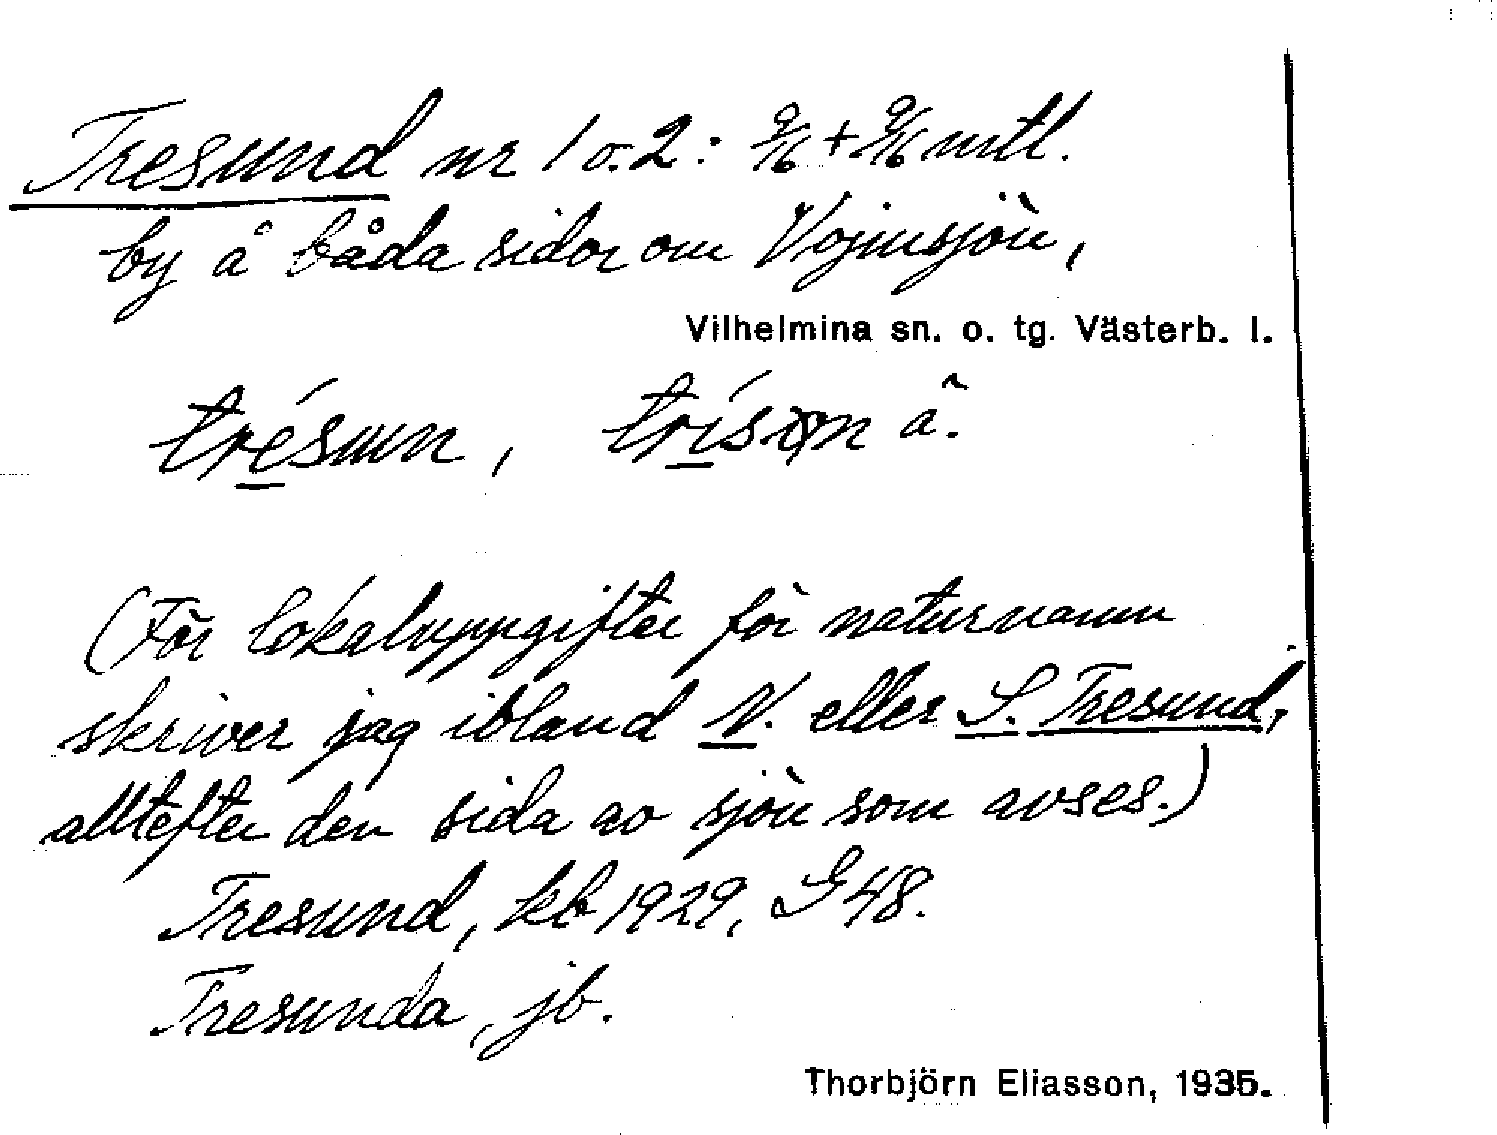 Tresund nr 1 o. 2: 9/16 + 9/16 mtl.
by å båda sidor om Vojmsjön,
Vilhelmina sn. o. tg. Västerb. l.
trésun, å.
(För lokaluppgifter för naturnamn
skriver jag ibland N. eller S. Tresund,
alltefter den sida av sjön som avses.)
Tresund, kb 1929, G 48.
Tresunda, jb.
Thorbjörn Eliasson, 1935.